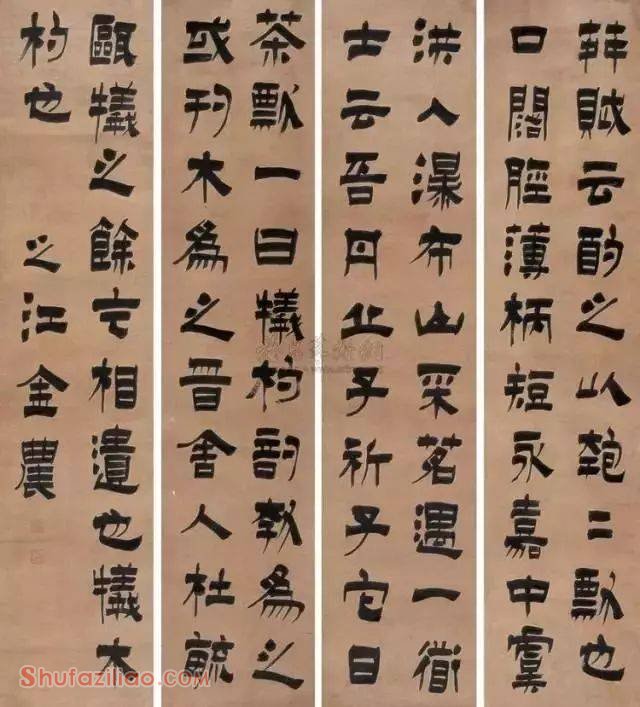 荈賦云酌之以匏二瓢也
口闊脛薄柄短永嘉中虞
洪入瀑布山采茗遇一道
士云吾丹丘子祈子它日
茶瓢一曰犧杓剖瓠為之
或刊木為之晉舍人杜毓
甌犧之餘乞相遺也犧木
杓也 之江金農
Shufaziliao.com